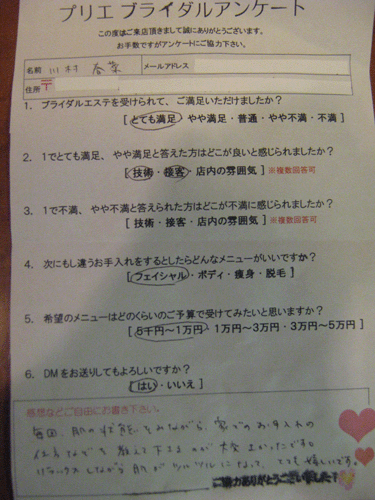 プリエ ブライダルアンケート
この度はご来店頂きまして誠にありがとうございます。
お手数ですがアンケートにご協力下さい。
名前 川村 春菜 メールアドレス
住所 〒
1. ブライダルエステを受けられて、ご満足いただけましたか？
[ とても満足・やや満足・普通・やや不満・不満 ]
2. 1でとても満足、やや満足と答えた方はどこが良いと感じられましたか？
[ 技術・接客・店内の雰囲気 ] ※複数回答可
3. 1で不満、やや不満と答えられた方はどこが不満に感じられましたか？
[ 技術・接客・店内の雰囲気 ] ※複数回答可
4. 次にもし違うお手入れをするとしたらどんなメニューがいいですか？
[ フェイシャル・ボディ・痩身・脱毛 ]
5. 希望のメニューはどのくらいのご予算で受けてみたいと思いますか？
[ 8千円～1万円・1万円～3万円・3万円～5万円 ]
6. DMをお送りしてもよろしいですか？
[ はい・いいえ ]
感想などご自由にお書き下さい。
毎回、肌の状態をみながら、家でのお手入れの
仕方なども教えて下さるのが大変よかったです。
リラックスしながら肌がツルツルになって、とても嬉しいです。
ご協力ありがとうございました